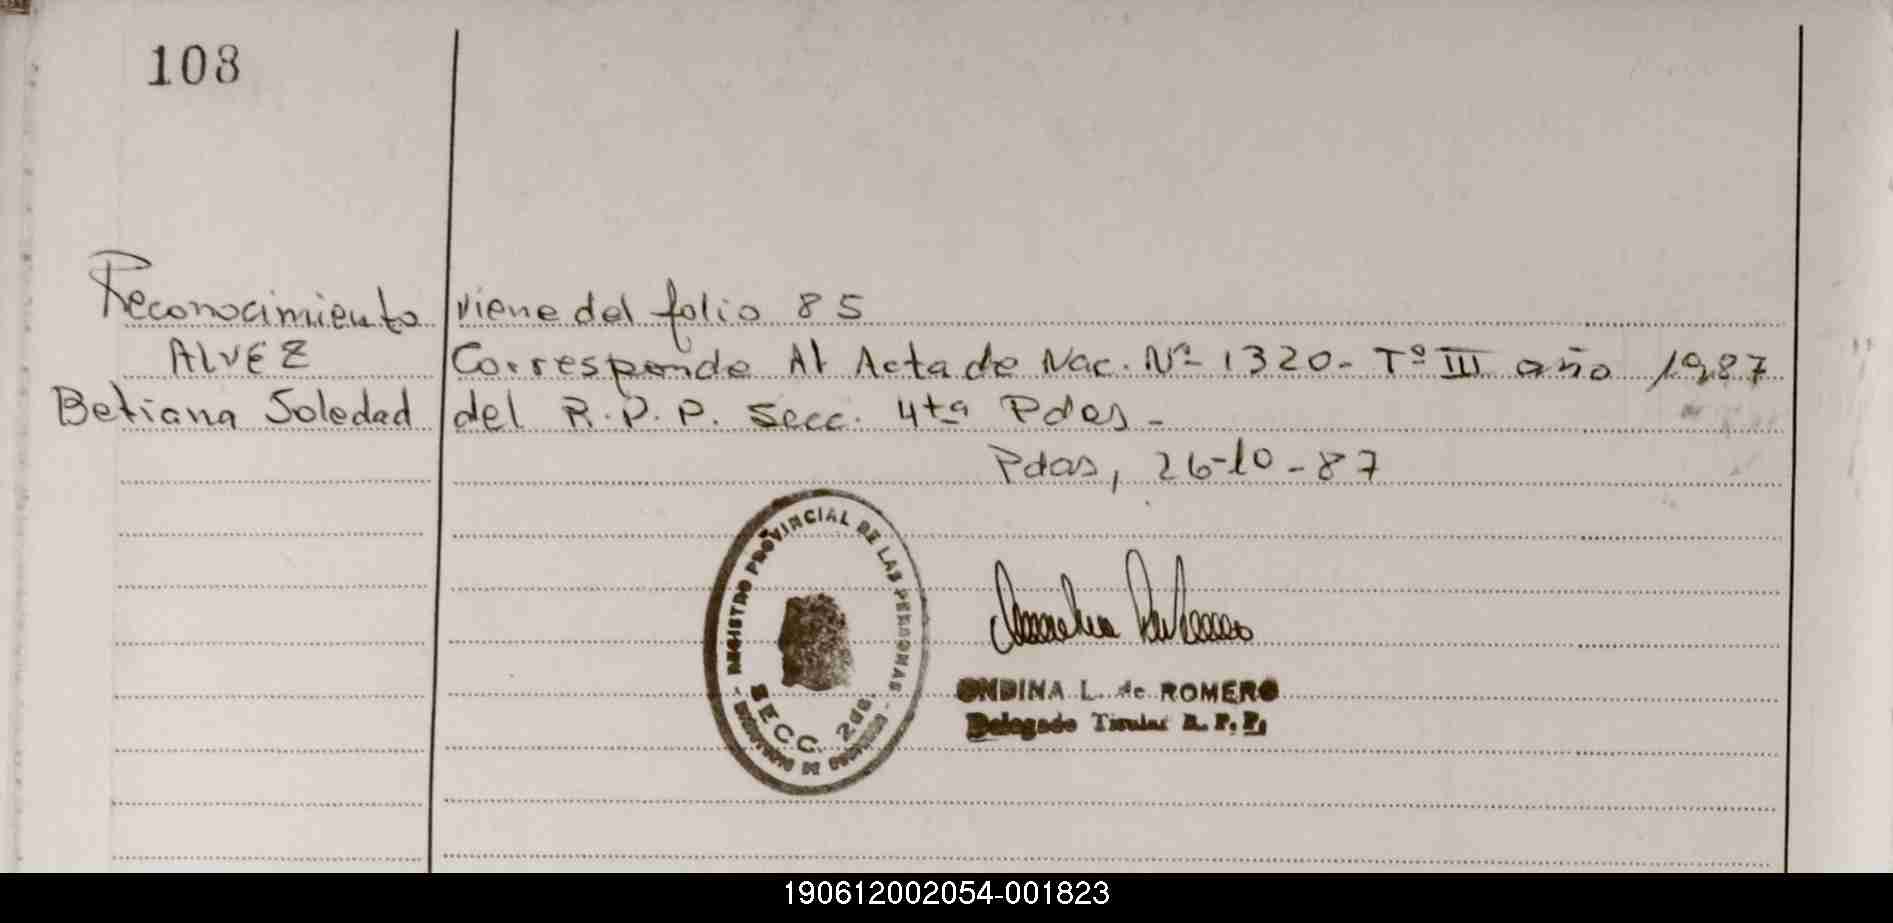 108
Reconocimiento viene del folio 85
ALVEZ Corresponde Al Acta de Nac. Nº 1320- Tº III año 1987
Betiana Soledad del R.P.P. Secc. 4ta Pdas -
Pdas, 26-10-87
REGISTRO PROVINCIAL DE LAS PERSONAS
SECC. 2da.
ONDINA L. de ROMERO
Delegado Titular R. P. P.
190612002054-001823